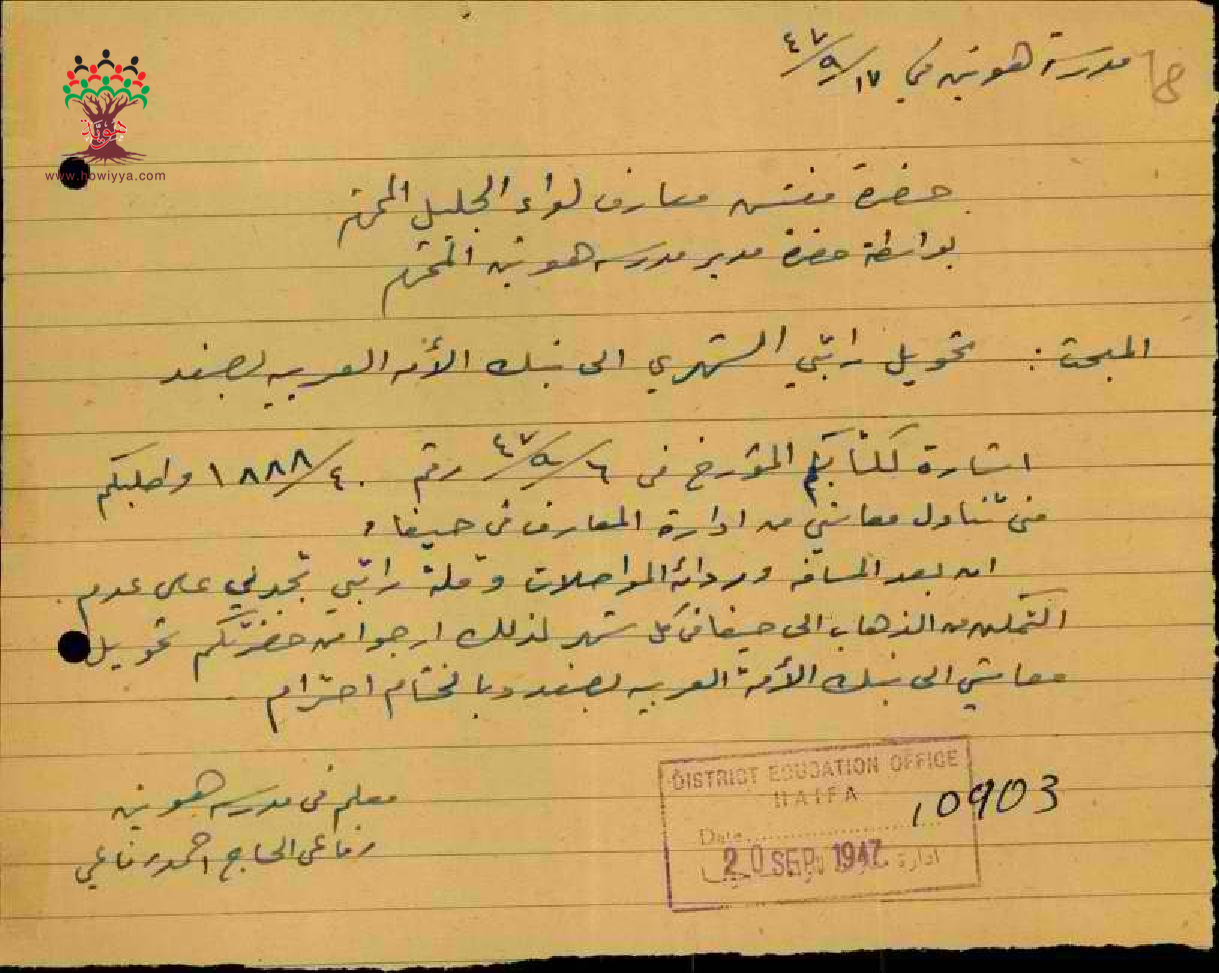 مدرسة هونين في ١٧/٩/٤٧
18
هوية
www.howiyya.com
حضرة مفتش معارف لواء الجليل المحترم
بواسطة حضرة مدير مدرسه هونين المحترم
المبحث : تحويل راتبي الشهري الى بنك الأمه العربيه بصفد
اشارة لكتابكم المؤرخ في ٦/٩/٤٧ رقم ١٨٨٨/٤٠ وطلبكم
مني تناول معاشي من ادارة المعارف في حيفا ،
ان بعد المسافه ورداءة المواصلات وقلة راتبي تجبرني على عدم
التمكن من الذهاب الى حيفا في كل شهر لذلك ارجو من حضرتكم تحويل
معاشي الى بنك الأمة العربيه بصفد وبالختام احترام
معلم في مدرسه هونين
رفاعي الحاج احمد رفاعي
DISTRICT EDUCATION OFFICE
HAIFA
10903
Date
20 SEP 1947
ادارة